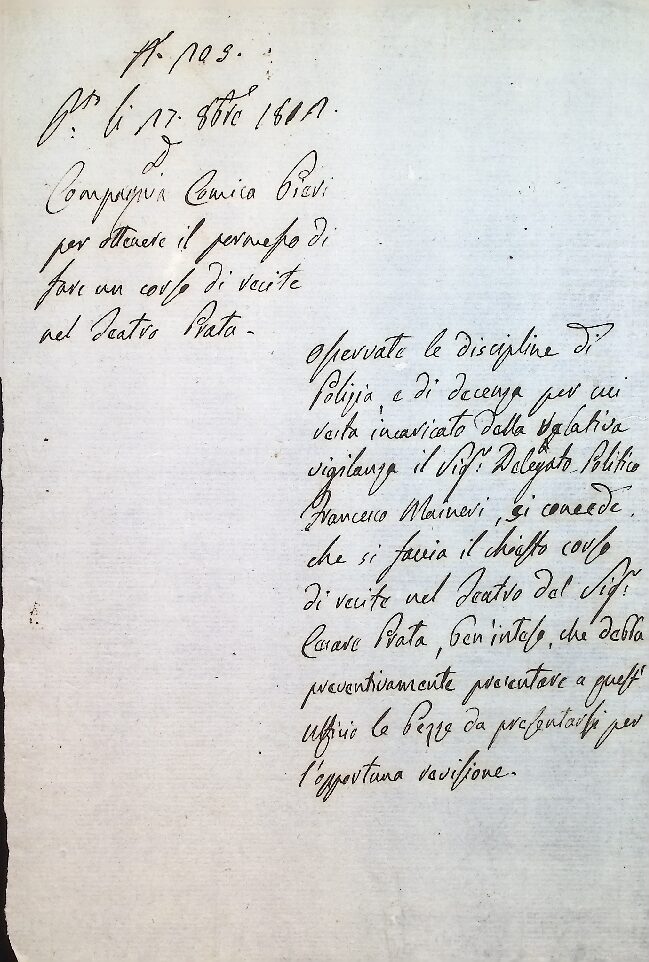 N. 103.
P.to li 17. 8bre 1801.
Compagnia Comica Pieri
per ottenere il permesso di
fare un corso di recite
nel Teatro Prata.
Osservate le discipline di
Polizia, e di decenza per cui
resta incaricato della relativa
vigilanza il Sig.r Delegato Politico
Francesco Maineri, si concede,
che si faccia il chiesto corso
di recite nel Teatro del Sig.r
Cesare Prata, ben'inteso, che debba
preventivamente presentare a quest'
Ufficio le Pezze da presentarsi per
l'opportuna revisione.